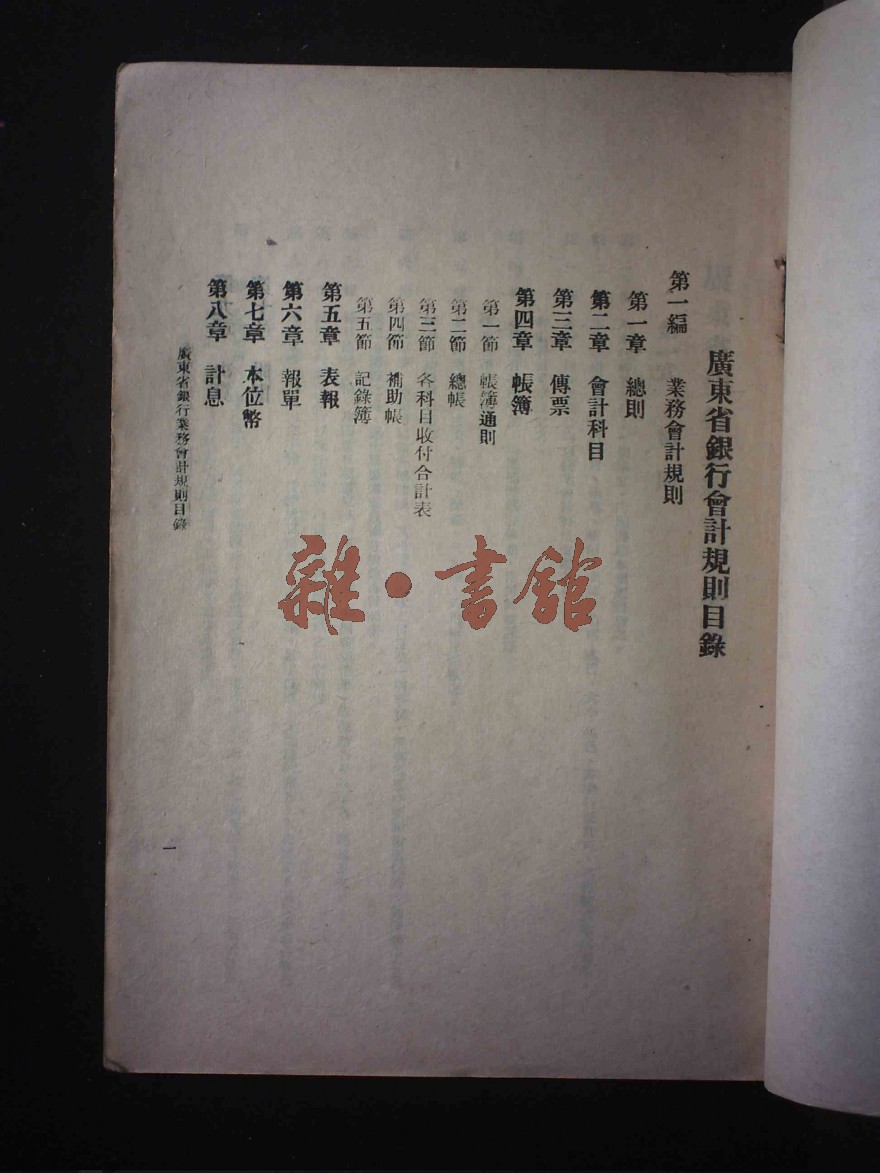 廣東省銀行會計規則目錄
第一編　業務會計規則
第一章　總則
第二章　會計科目
第三章　傳票
第四章　帳簿
第一節　帳簿通則
第二節　總帳
第三節　各科目收付合計表
第四節　補助帳
第五節　記錄簿
第五章　表報
第六章　報單
第七章　本位幣
第八章　計息
廣東省銀行業務會計規則目錄
一
雜·書館